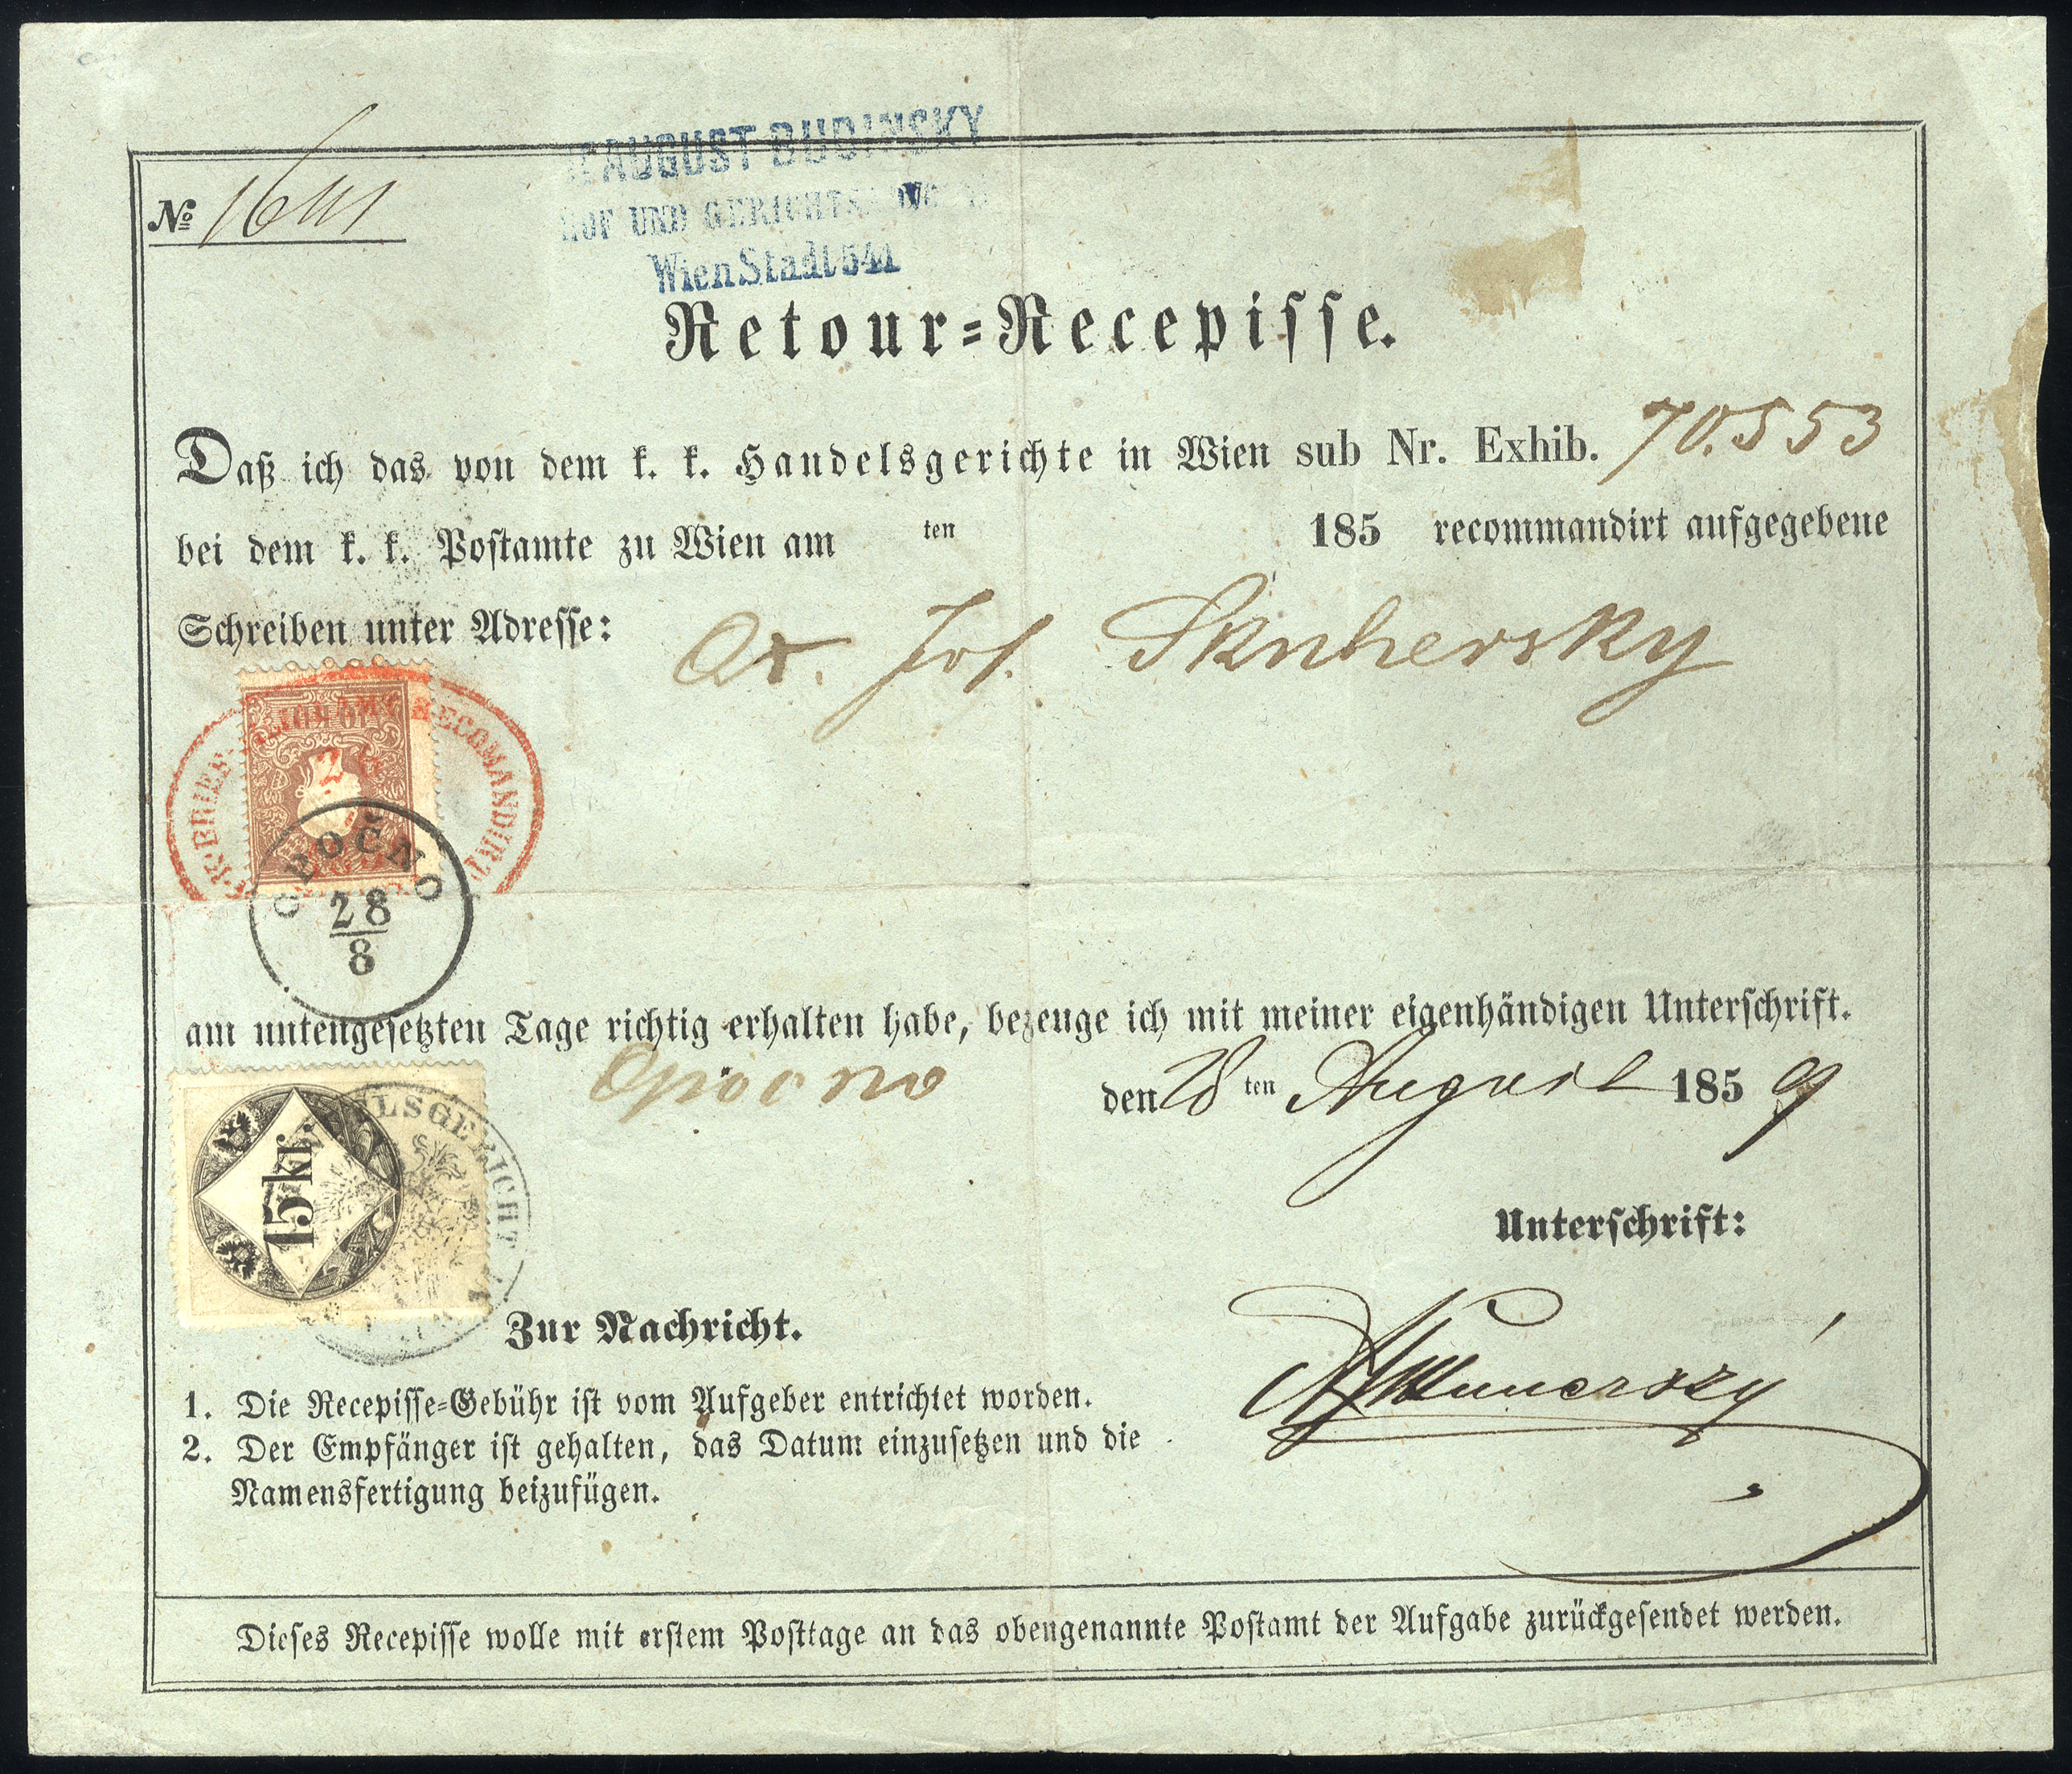 AUGUST BUDINSKY
HOF UND GERICHTS
Wien Stadt 541
№
Retour=Recepisse.
Daß ich das von dem k. k. Handelsgerichte in Wien sub Nr. Exhib. 70.553
bei dem k. k. Postamte zu Wien am ten 185 recommandirt aufgegebene
Schreiben unter Adresse: Jos. Skuhersky
RECOMANDIRT
OPOČNO
28
8
am untengesetzten Tage richtig erhalten habe, bezeuge ich mit meiner eigenhändigen Unterschrift.
Opocno den 28 ten August 1859
15 kr.
LSGERICHT
Unterschrift:
Zur Nachricht.
1. Die Recepisse=Gebühr ist vom Aufgeber entrichtet worden.
2. Der Empfänger ist gehalten, das Datum einzusetzen und die
Namensfertigung beizufügen.
Dieses Recepisse wolle mit erstem Posttage an das obengenannte Postamt der Aufgabe zurückgesendet werden.